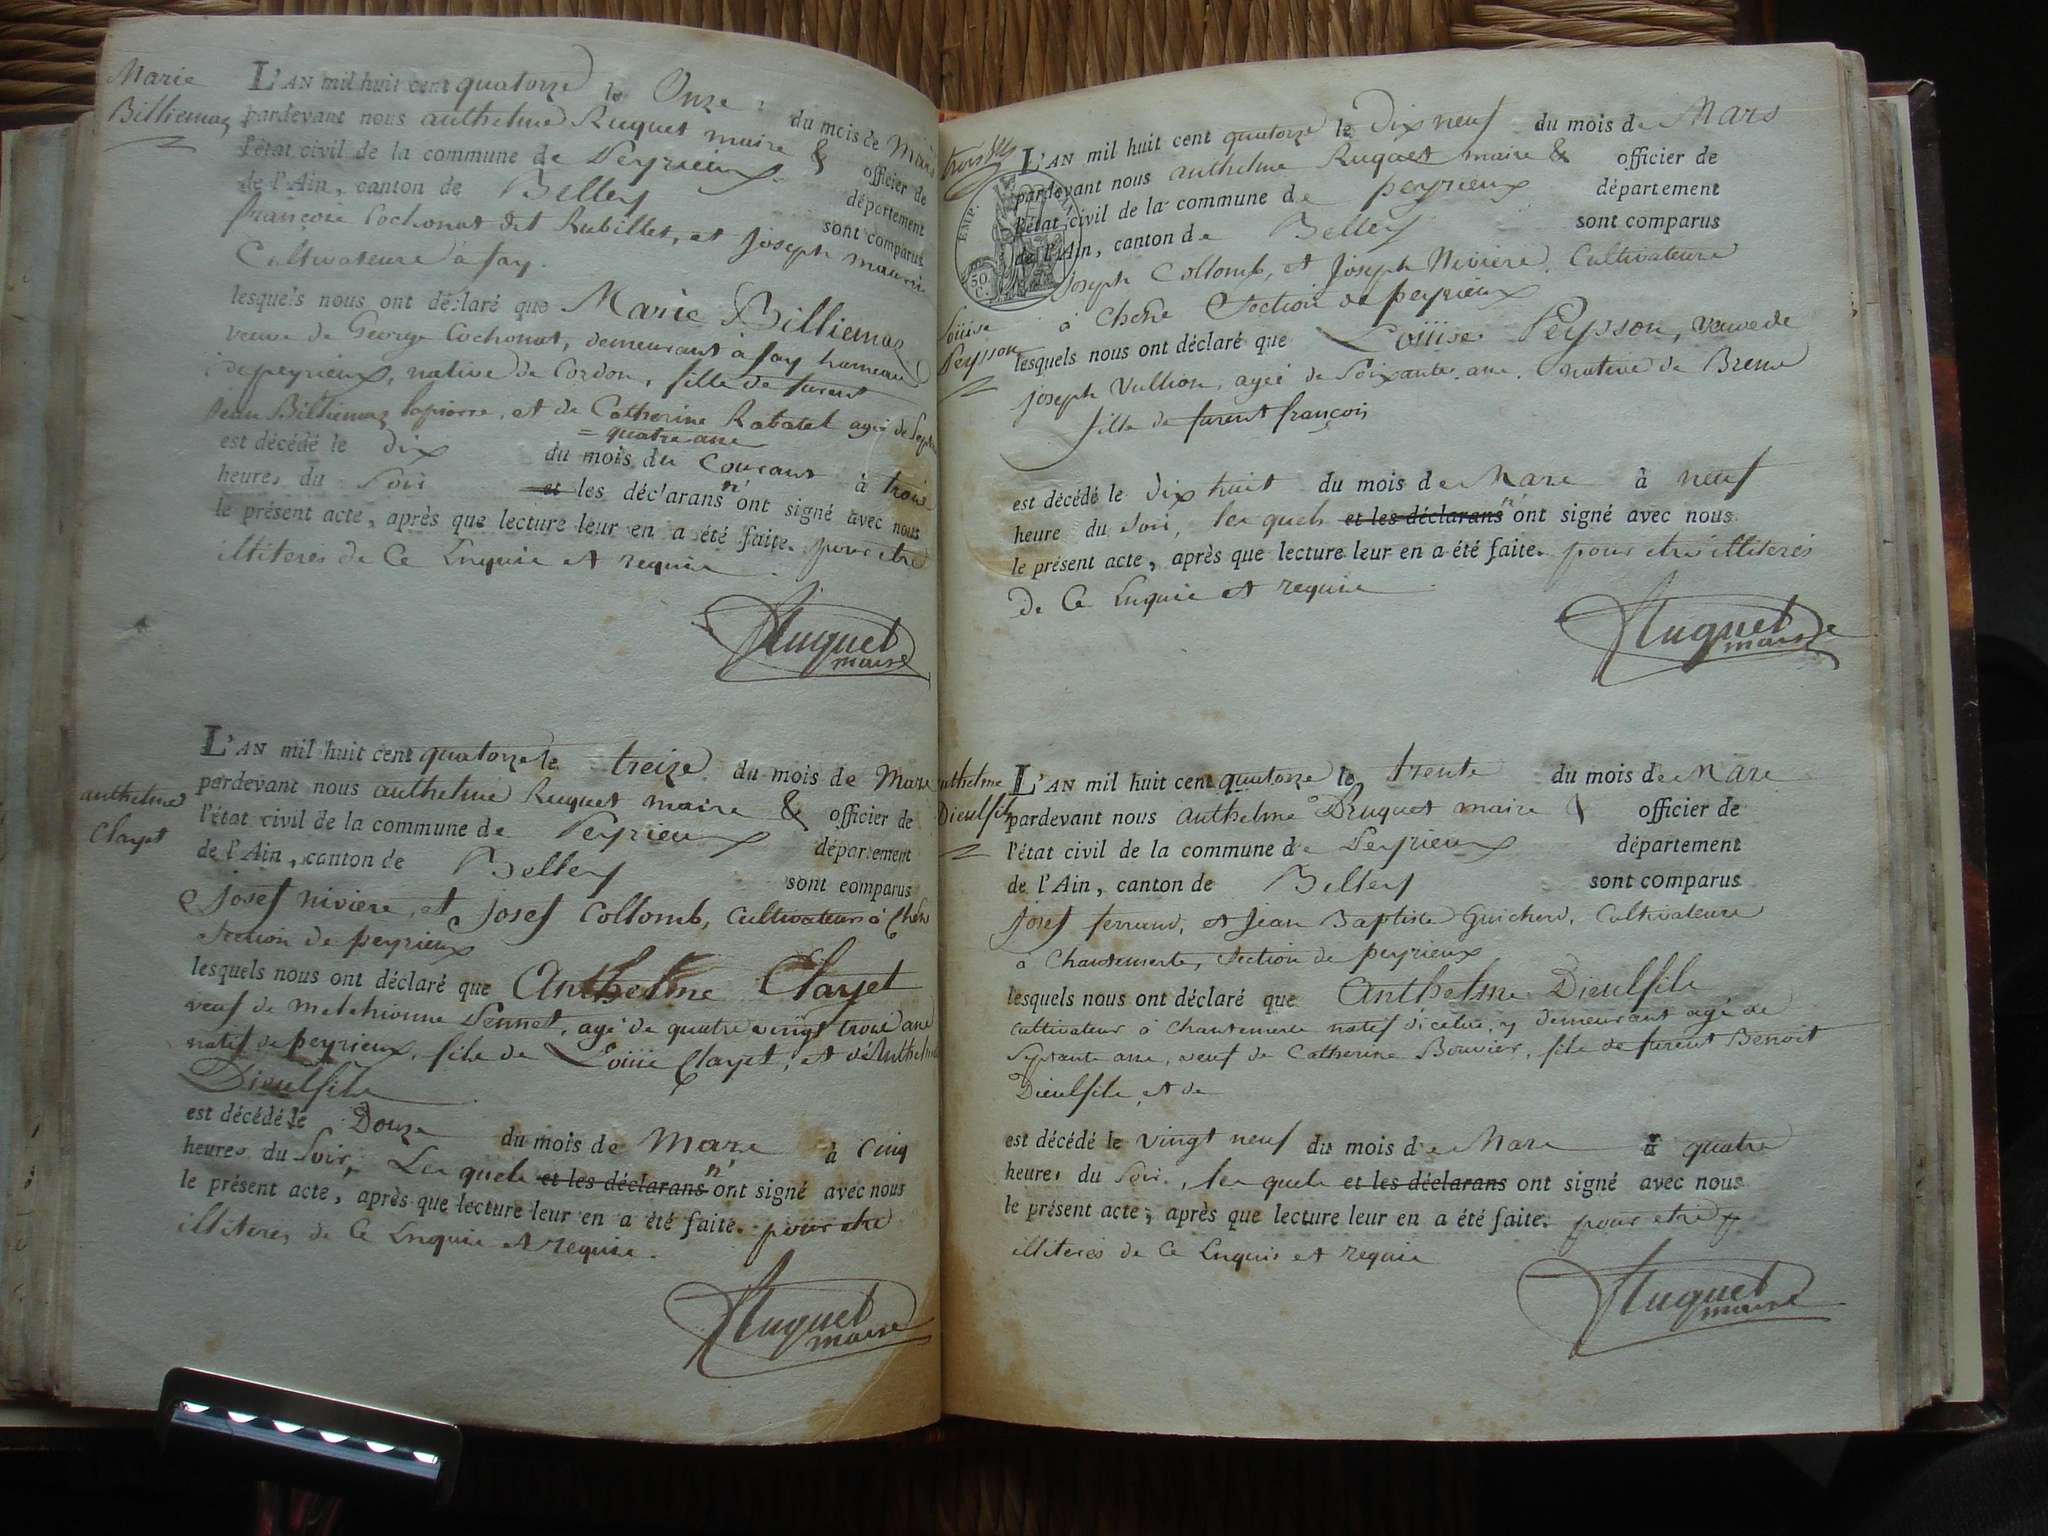 Marie
Billiemaz
L'AN mil huit cent quatorze le Onze du mois de Mars
pardevant nous anthelme Ruquet maire & officier de
l'état civil de la commune de Peyrieux département
de l'Ain, canton de Belley sont comparus
françois Cochonat dit Rubillet, et Joseph maurin
Cultivateurs à fay.
lesquels nous ont déclaré que Marie Billiemaz
veuve de George Cochonat, demeurant à fay hameau
de peyrieux, native de Cordon, fille de furent
Jean Billiemaz lapierre, et de Catherine Rabatel agée de Septante
= quatre ans
est décédé le dix du mois du Courant à trois
heures du Soir et les déclarans n'ont signé avec nous
le présent acte, après que lecture leur en a été faite. pour etre
illiteres de Ce Enquis et requis
Ruquet
maire
anthelme
Clayet
L'AN mil huit cent quatorze le treize du mois de Mars
pardevant nous anthelme Ruquet maire & officier de
l'état civil de la commune de Peyrieux département
de l'Ain, canton de Belley sont comparus
Josef nivière, et Josef Collomb, Cultivateurs à Chêne
Section de peyrieux
lesquels nous ont déclaré que Anthelme Clayet
veuf de melchionne Pennet, agé de quatre vingt trois ans
natif de peyrieux, fils de Loüis Clayet, et de Anthelme
Dieulfils
est décédé le Douze du mois de Mars à Cinq
heures du Soir, Les quels et les déclarans n'ont signé avec nous
le présent acte, après que lecture leur en a été faite. pour etre
illiteres de Ce Enquis et requis.
Ruquet
maire
EMP.
50
C.
L'AN mil huit cent quatorze le Dix neuf du mois de Mars
pardevant nous anthelme Ruquet maire & officier de
l'état civil de la commune de peyrieux département
de l'Ain, canton de Belley sont comparus
Joseph Collomb, et Joseph Nivière, Cultivateurs
à Chêne Section de peyrieux
Loüise
Peysson
lesquels nous ont déclaré que Loüise Peysson, veuve de
Joseph Vullion, agée de Soixante ans, native de Brens
fille de furent françois
est décédé le dix huit du mois de Mars à neuf
heure du Soir, les quels et les déclarans n'ont signé avec nous
le présent acte, après que lecture leur en a été faite. pour etre illiterés
de Ce Enquis et requis
Ruquet
maire
anthelme
Dieulfils
L'AN mil huit cent quatorze le trente du mois de Mars
pardevant nous anthelme Ruquet maire & officier de
l'état civil de la commune de Peyrieux département
de l'Ain, canton de Belley sont comparus
Josef ferrand, et Jean Baptiste Guicherd, Cultivateurs
à Chantemerle, Section de peyrieux
lesquels nous ont déclaré que Anthelme Dieulfils
cultivateur à Chantemerle natif d'icelui, y demeurant agé de
Septante ans, veuf de Catherine Bouvier, fils de furent Benoit
Dieulfils, et de
est décédé le vingt neuf du mois de Mars à quatre
heures du Soir, les quels et les déclarans ont signé avec nous
le présent acte, après que lecture leur en a été faite. pour etre
illiterés de Ce Enquis et requis
Ruquet
maire